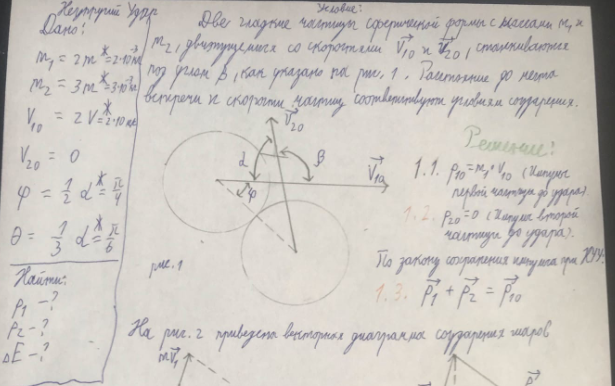 Неупругий Удар
Дано:
m₁ = 2m = 2·10
m₂ = 3m = 3·10
V₁₀ = 2V = 2·10
V₂₀ = 0
φ = 1/2 α = π/4
θ = 1/3 α = π/6
Найти:
p₁ - ?
p₂ - ?
ΔE - ?
Условие:
Две гладкие частицы сферической формы с массами m₁ и
m₂, движущиеся со скоростями V⃗₁₀ и V⃗₂₀, сталкиваются
под углом β, как указано на рис. 1. Расстояние до места
встречи и скорости частиц соответствуют условиям соударения.
V⃗₂₀
α
β
φ
V⃗₁₀
рис. 1
Решение:
1.1. p₁₀ = m₁·V₁₀ (Импульс
первой частицы до удара)
1.2. p₂₀ = 0 (Импульс второй
частицы до удара).
По закону сохранения импульса при
1.3. p⃗₁ + p⃗₂ = p⃗₁₀
На рис. 2 приведена векторная диаграмма соударения шаров
mV⃗₁